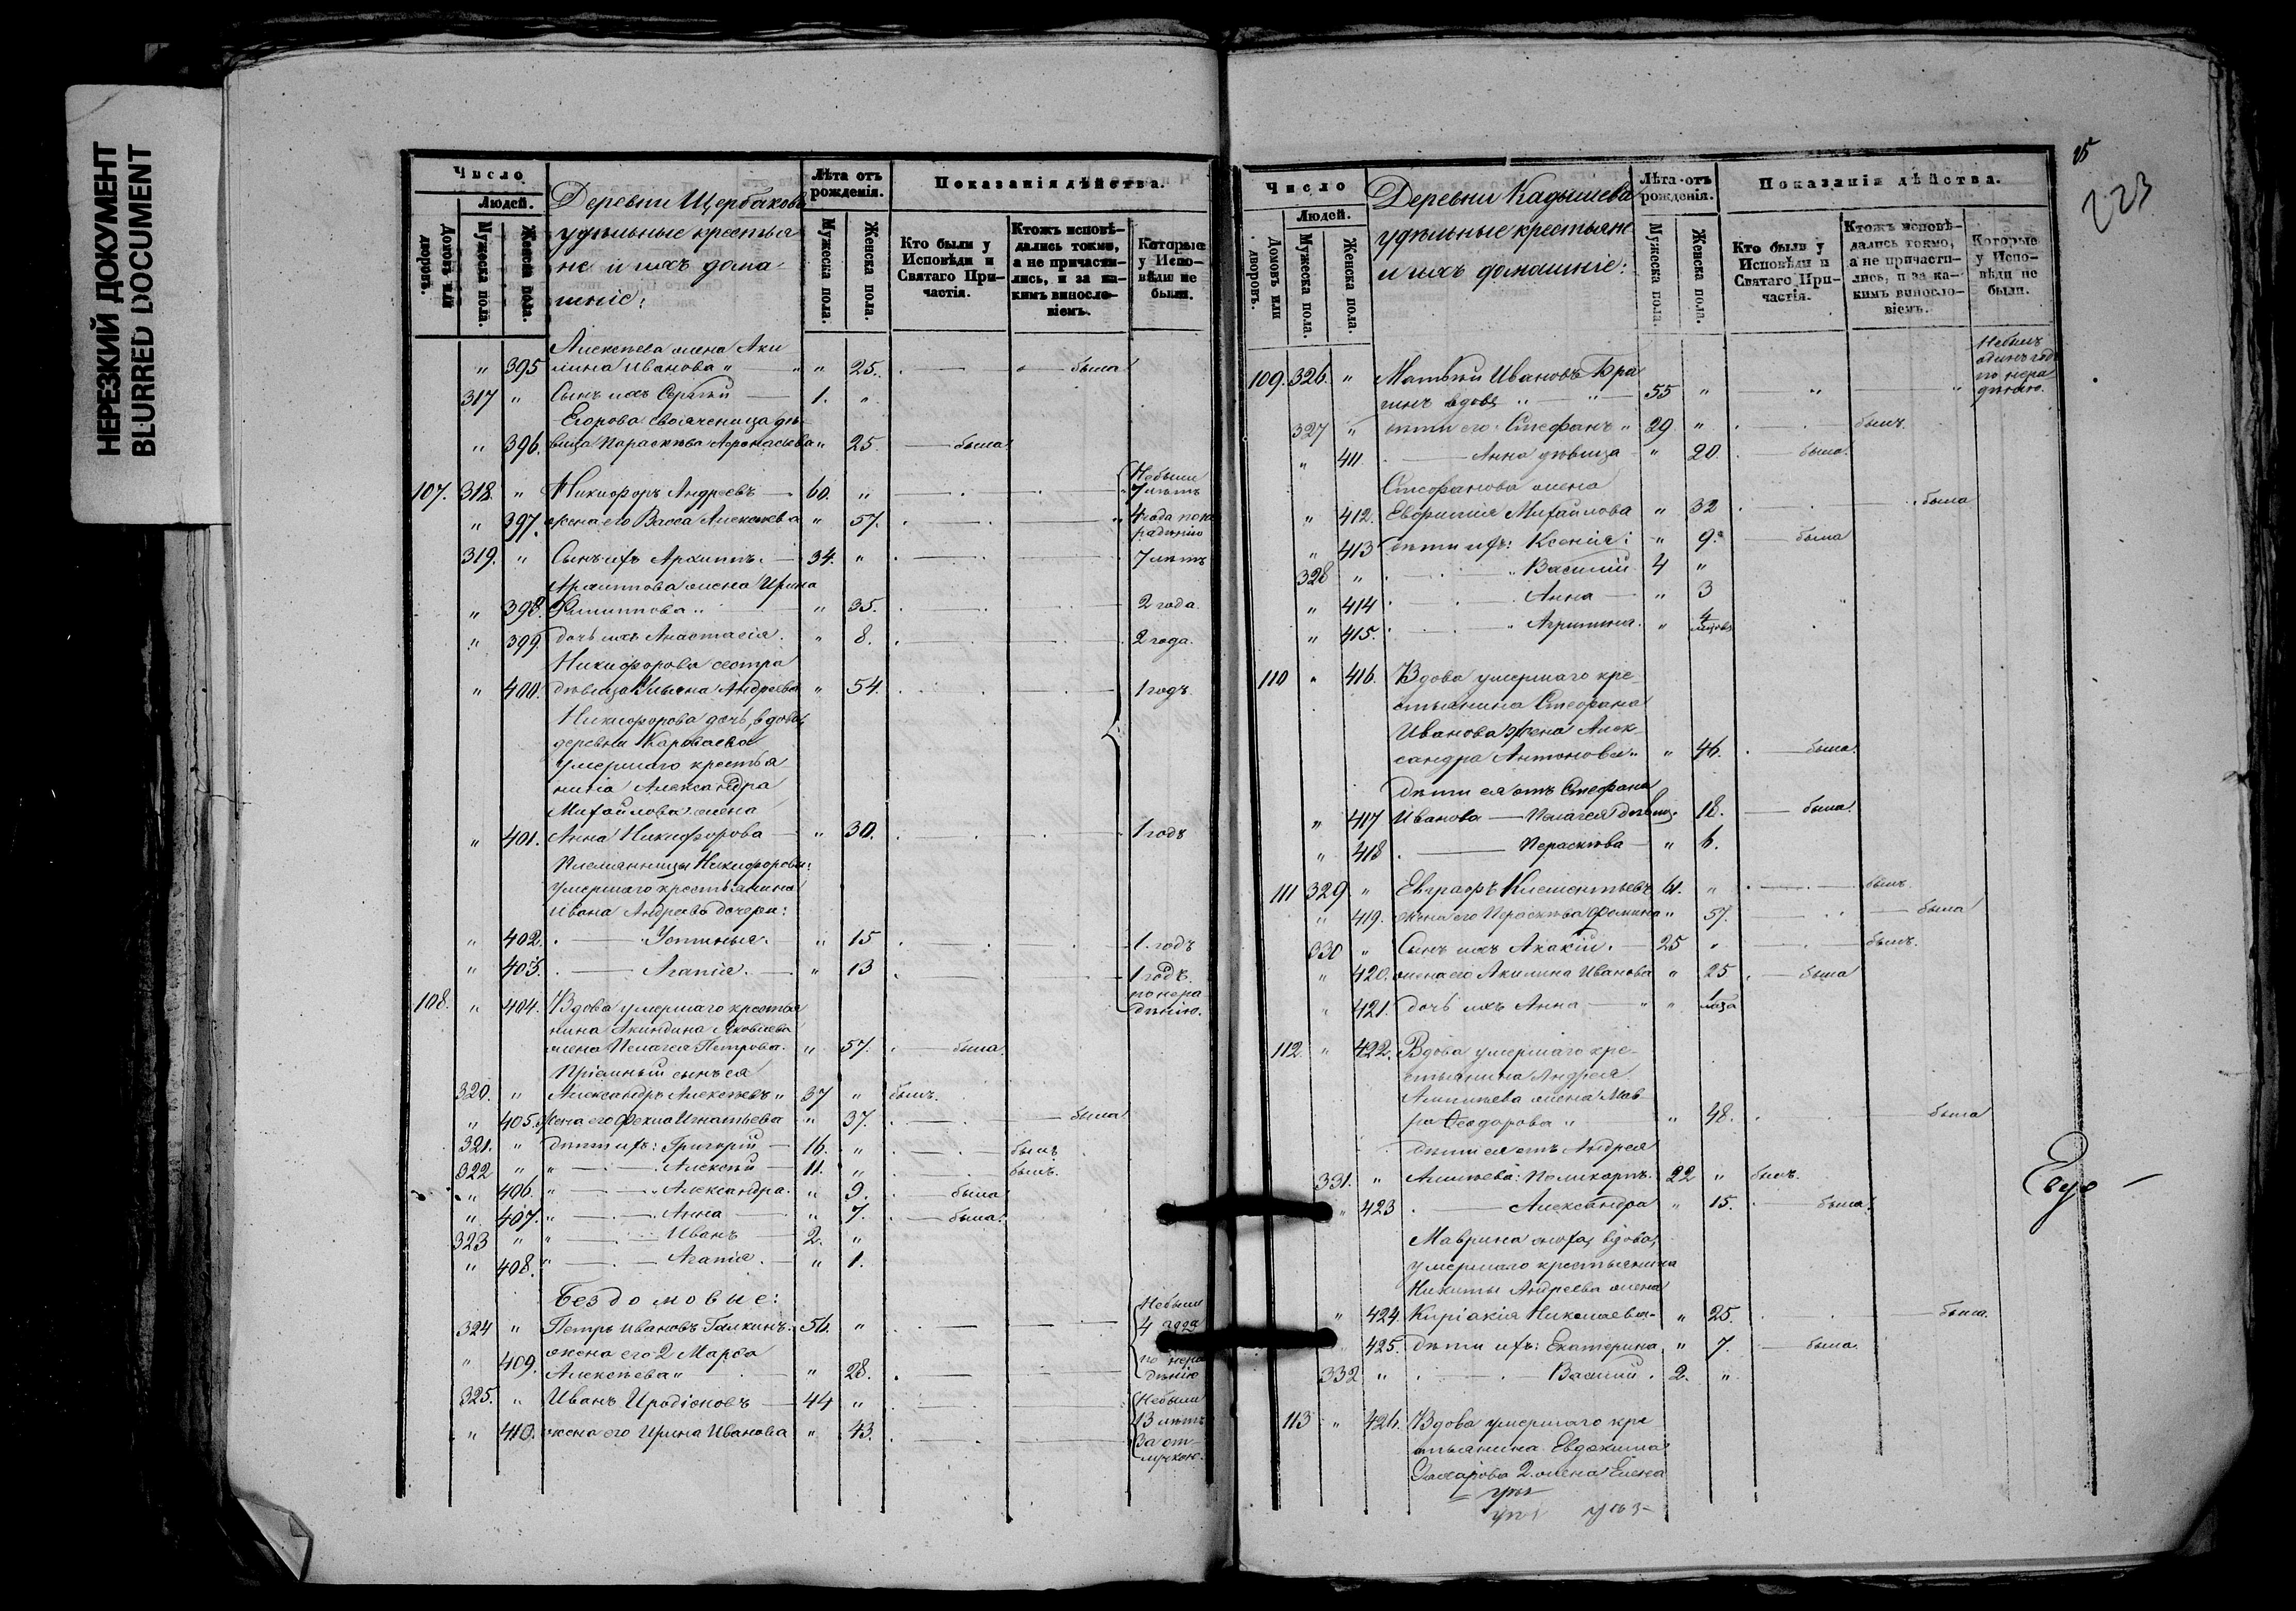 НЕРЕЗКИЙ ДОКУМЕНТ
BLURRED DOCUMENT
Число
Людей.
Домовъ или дворовъ.
Мужеска пола.
Женска пола.
Деревни Щербаковы
удѣльные крестья
не и ихъ дома
шніе:
Лѣта отъ рожденія.
Мужеска пола.
Женска пола.
Показанія дѣйства.
Кто были у Исповѣди и Святаго При-частія.
Ктожъ исповѣ-дались токмо, а не причасти-лись, и за ка-кимъ винословіемъ.
Которые у Испо-вѣди не были.
Алексѣева жена Аки
" 395 лина Иванова " " 25. была
317 " Сынъ ихъ Сергѣй 1. "
Егорова свояченица дѣ-
" 396. вица Параскѣва Афонасьева " 25. была
107. 318. " Никифоръ Андреевъ 60. " Небыли 7 лѣтъ
" 397. жена его Васса Алексѣева " 57. 4 года по не радѣнію
319. " Сынъ ихъ Архиппъ. 34. " 7 лѣтъ
Архиппова жена Ирина
" 398. Филиппова " " 35. 2 года.
" 399. дочь ихъ Анастасія. " 8. 2 года.
Никифорова сестра
" 400. дѣвица Ульяна Андреева " 54. 1 годъ.
Никифорова дочь, вдова,
деревни Караваева
умершаго крестья
нина Александра
Михайлова жена
" 401. Анна Никифорова " 30. 1 годъ
Племянницы Никифоровы:
умершаго крестьянина
Ивана Андреева дочери:
" 402. Устинья. " 15 1. годъ
" 403. Агапія. " 13 1 годъ. по нера дѣнію.
108. " 404. Вдова умершаго крестья
нина Акиндина Яковлева
жена Пелагея Петрова. " 57. была.
Пріемный сынъ ея
320. " Александръ Алексѣевъ " 37 " былъ.
" 405. Жена его Фекла Игнатьева " 37. была
321. " дѣти ихъ: Григорій 16. " былъ
322 " " Алексѣй 11. " былъ.
" 406. " Александра. " 9. была
" 407. " Анна " 7. была.
323 " " Иванъ 2. "
" 408. " Агапія. " 1.
Бездомовые:
324 " Петръ Ивановъ Галкинъ. 56. " Небыли 4 года
" 409. жена его 2 Марѳа
Алексѣева " " 28. по нера дѣнію
325. " Иванъ Иродіоновъ 44 " Небыли 13 лѣтъ
" 410. жена его Ирина Иванова " 43. За от-лучкою.
25
223
Число
Людей.
Домовъ или дворовъ.
Мужеска пола.
Женска пола.
Деревни Кадышева
удѣльные крестьяне
и ихъ домашніе:
Лѣта отъ рожденія.
Мужеска пола.
Женска пола.
Показанія дѣйства.
Кто были у Исповѣди и Святаго При-частія.
Ктожъ исповѣ-дались токмо, а не причасти-лись, и за ка-кимъ винословіемъ.
Которые у Испо-вѣди не были.
109. 326. " Матвѣй Ивановъ Бра
гинъ вдовъ " " 55 " Небылъ одинъ годъ по нера дѣнію.
327 " дѣти его: Стефанъ " 29 " былъ.
" 411. Анна дѣвица " 20. была.
Стефанова жена
" 412. Евфимія Михайлова " 32 была
" 413 дѣти ихъ: Ксенія: " 9. была
328 " " Василій 4 "
" 414 Анна " 3
" 415. Агрипина. " 4 мѣсяц
110 " 416. Вдова умершаго кре-
стьянина Стефана
Иванова жена Алек-
сандра Антонова " " 46. была.
Дѣти ея отъ Стефана
" 417 Иванова Пелагея дѣвица. 18. была.
" 418 Параскѣва " 6.
111 329 " Евграфъ Клементьевъ 61. " былъ.
" 419. жена его Параскѣва Фомина " 57. была
330 " Сынъ ихъ Акакій. 25 " былъ.
" 420. жена его Акилина Иванова " 25 была
" 421. дочь ихъ Анна " " 1 мѣся
112. " 422. Вдова умершаго кре-
стьянина Андрея
Алипіева жена Мав-
ра Ѳеодорова " " 48. была
Дѣти ея отъ Андрея
331. " Алипіева: Поликарпъ. 22 " былъ.
" 423 Александра " 15. была.
Маврина сноха, вдова,
умершаго крестьянина
Никиты Андреева жена
" 424. Киріакія Николаева " 25. была.
" 425. Дѣти ихъ: Екатерина, " 7. была.
332 " Василій. 2. "
113 " 426. Вдова умершаго кре
стьянина Евдокима
Захарова 2. жена Елена